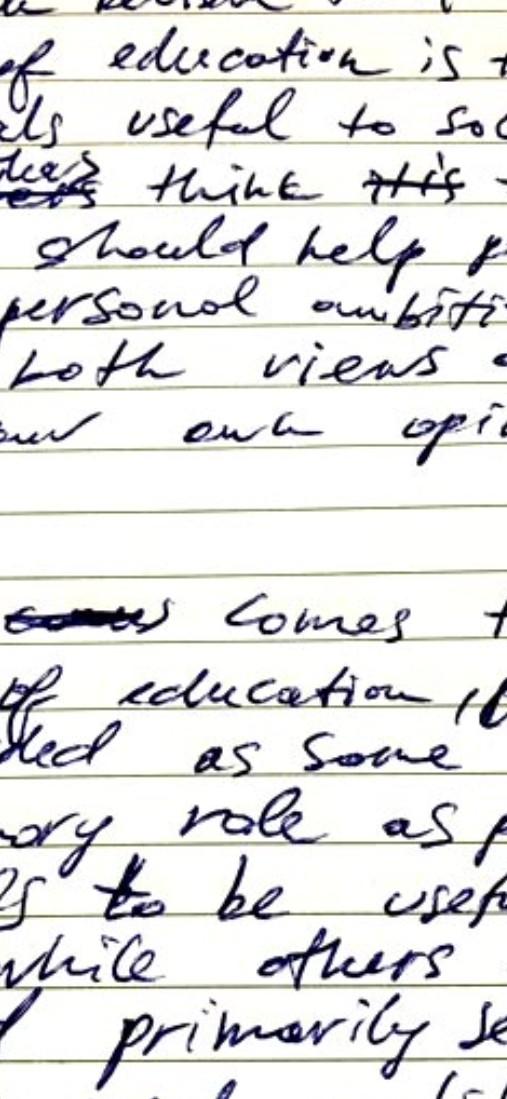 of education is t
als useful to soc
think this
should help p
personal ambiti
both views
own opi
comes t
of education,
ded as some
ary role as p
ls to be usef
while others
d primarily se